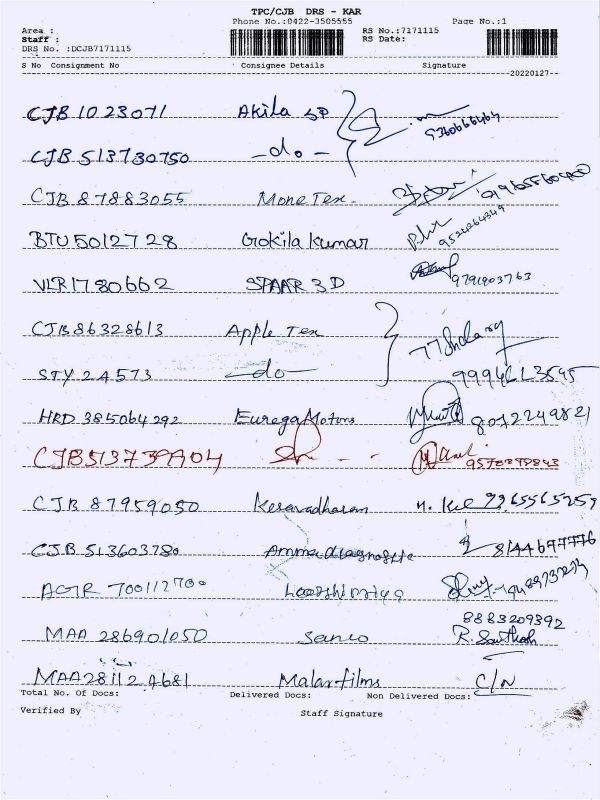 TPC/CJB DRS - KAR
Phone No.:0422-3505555 Page No.:1
Area :
Staff :
DRS No. :DCJB7171115
RS No.:7171115
RS Date:
S No Consignment No Consignee Details Signature
--20220127--
CJB 1023071 Akila SD
9360666464
CJB 513730750 -do-
CJB 87883055 Mone Tex.
BTU 5012728 Gokila kumar
VLR1780662 SPAAR 3D 9791903763
CJB86328613 Apple Tex
STY 2A573 -do-
HRD 385064292 Eurega Motors 8012249821
CJB513739904
CJB 87959050 Kesavadharan
CJB 513603780 Amma diagnostic 8144677776
AGR 700112700
8883209392
MAA 286901050 Sanco R. Santhosh
MAA281124681 Malar films C/N
Total No. Of Docs: Delivered Docs: Non Delivered Docs:
Verified By Staff Signature